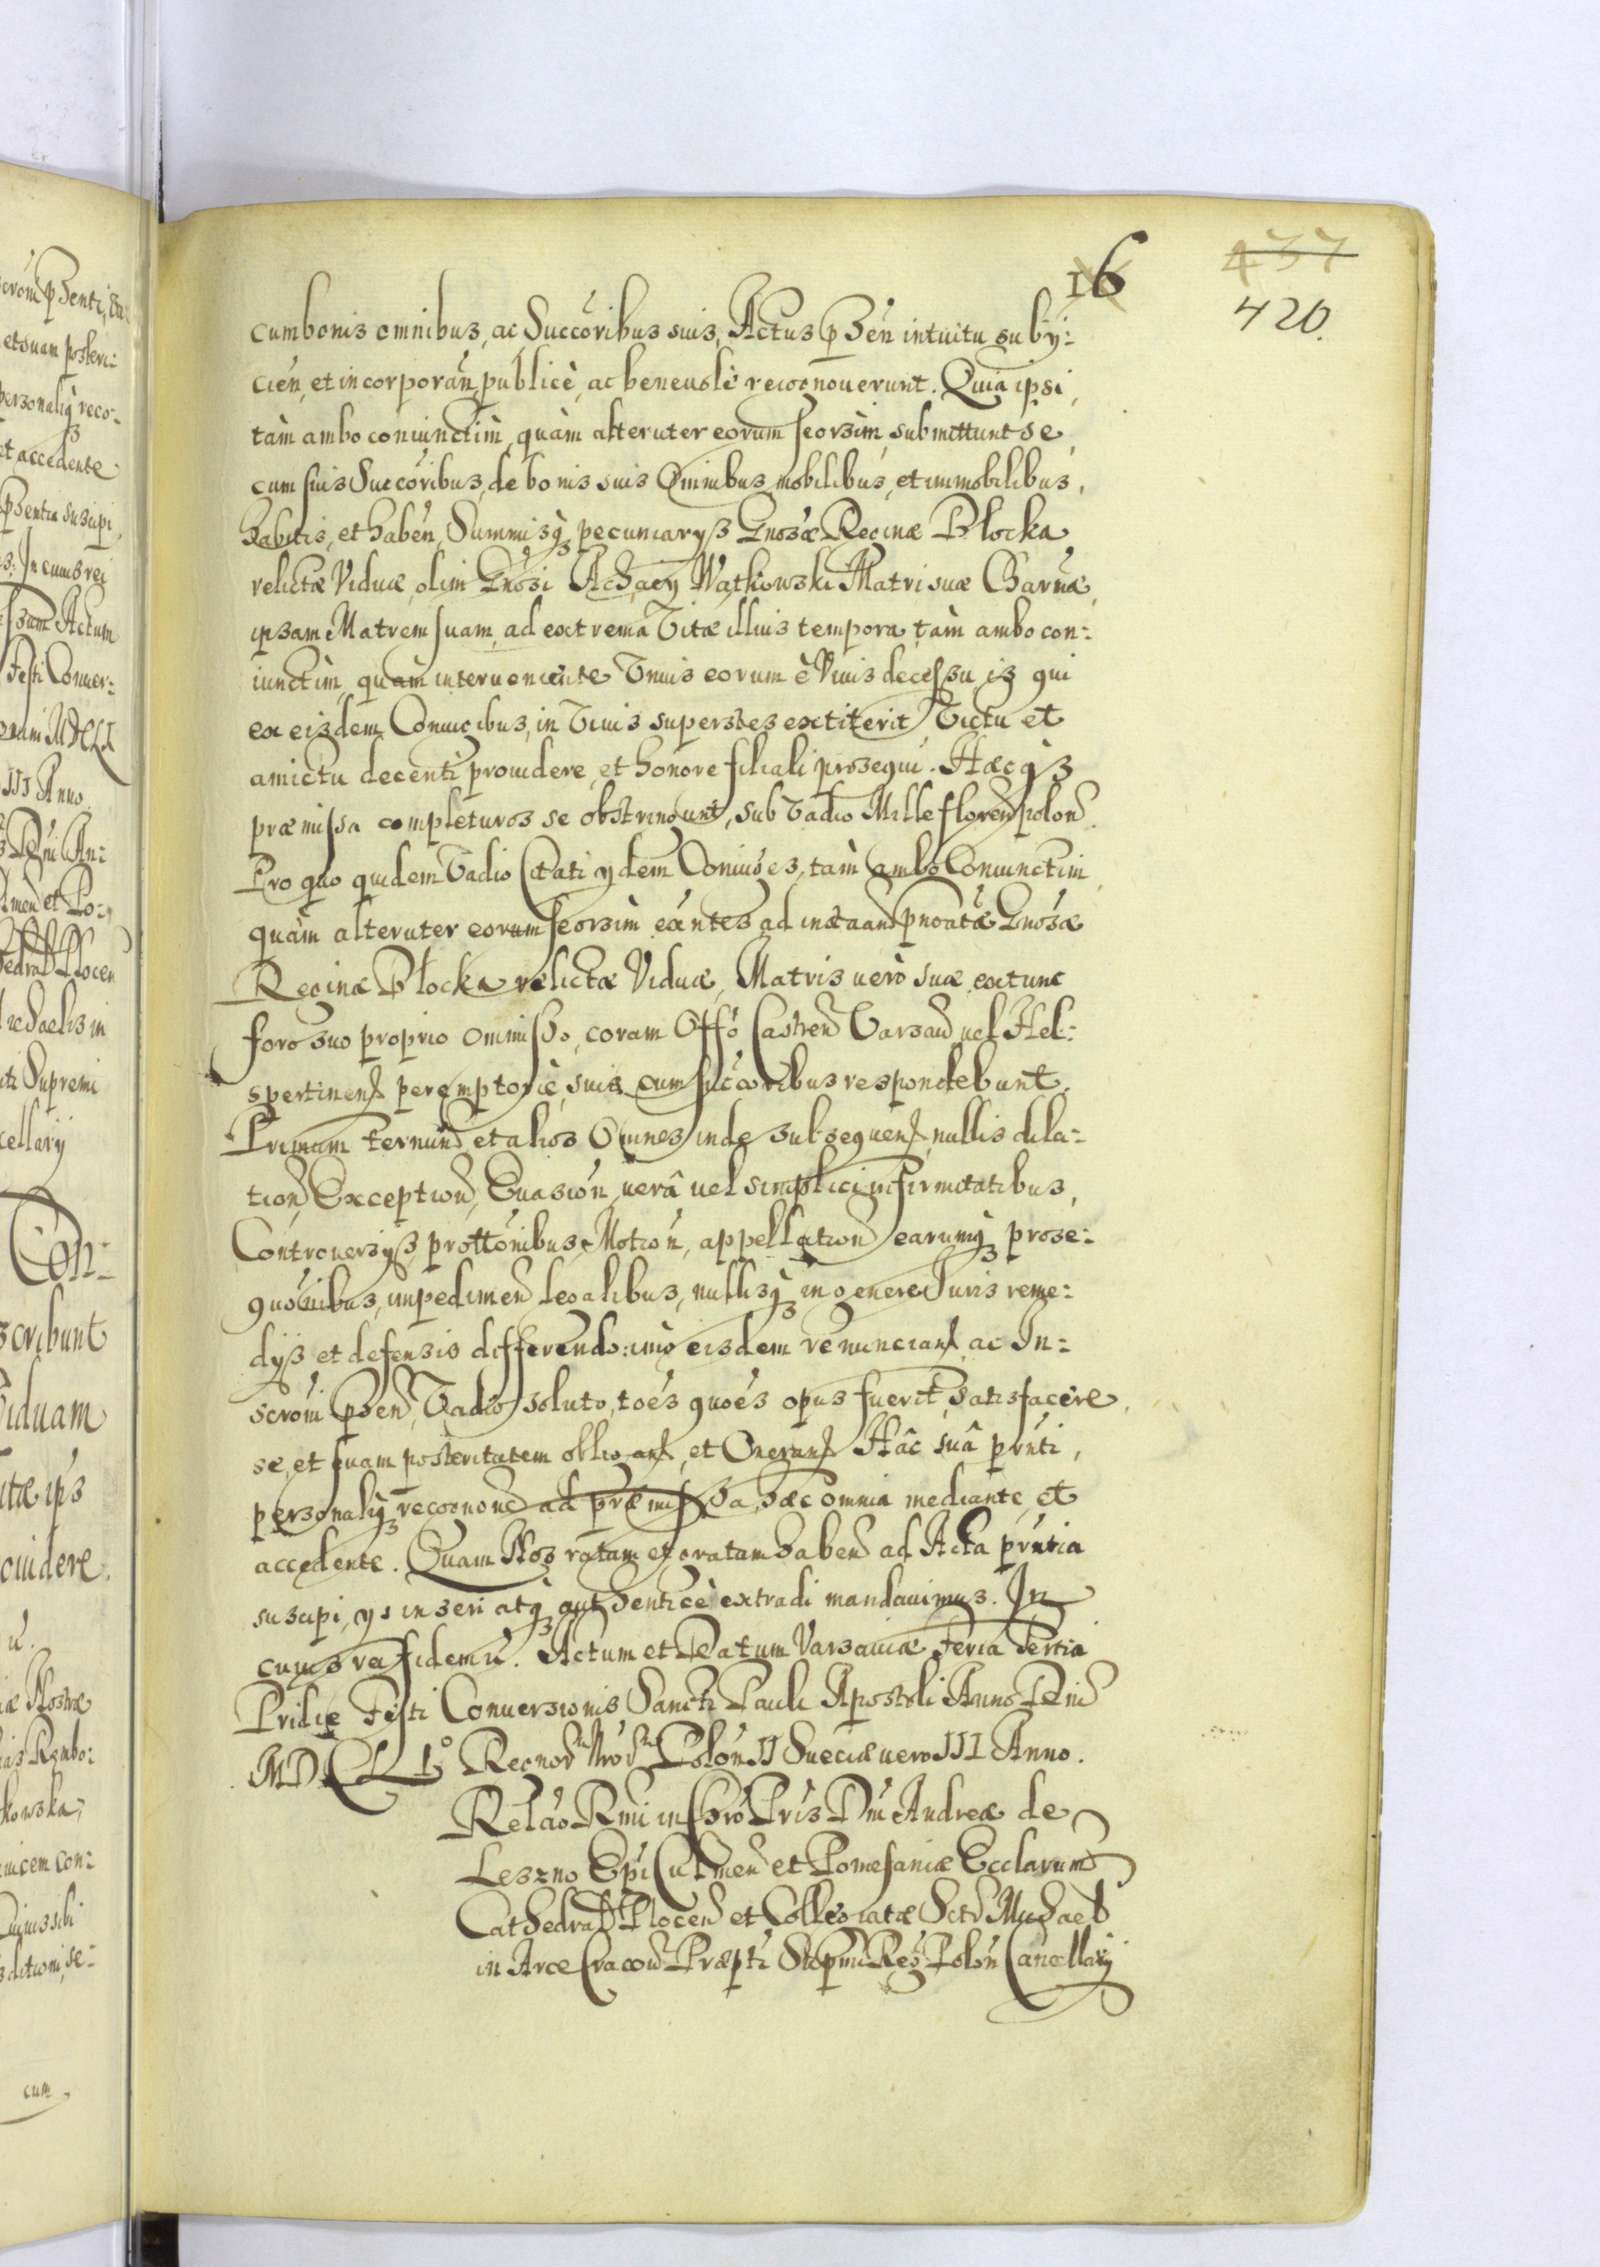 16
437
420.
cum bonis omnibus, ac Succoribus suis, Actus pñsen intuitu subij:
cien, et incorporan, publicè, ac beneuolè recognouerunt. Quia ipsi,
tàm ambo coniunctim, quàm alteruter eorum seorsim, submittunt se,
cum suis Succoribus, de bonis suis Omnibus, mobilibus, et immobilibus,
habitis, et haben, Summisq3 pecuniarys Gnosæ Reginæ Plocka
relictæ Viduæ, olim Gnosi Achacy Wątkowski Matri suæ Charæ,
ipsam Matrem suam, ad extrema Vitæ illius tempora, tàm ambo con:
iunctim, quàm interueniente Vnius eorum è Viuis decessu, is qui
ex eisdem Coniugibus, in Viuis superstes extiterit, Victu et
amictu decenti prouidere, et honore filiali prosequi. Hæcq3
præmissa completuros se obstringunt, sub Vadio Mille floren polon.
Pro quo quidem Vadio Citati ydem Coniuges, tàm ambo Coniunctim,
quàm alteruter eorum seorsim extntes ad instaan pnoatæ Gnosæ
Reginæ Plocka relictæ Viduæ, Matris uerò suæ, extunc
foro suo proprio Ommisso, coram Offo Castren Varsauien uel Hel:
spertinen peremptoriè, suis cum succoribus respondebunt.
Primum termin et alios Omnes inde subsequen, nullis dila:
tion, Exception, Euasion, uerâ uel simplici infirmitatibus,
Controuersijs, prottonibus, Motion, appellation, earumq3 prose:
quonibus, impedimen legalibus, nullisq3 in genere Juris reme:
dijs et defensis differendo: imò eisdem renuncian, ac In:
scroni pñsen, Vadio soluto, toes quoes opus fuerit, satisfacere,
se, et suam posteritatem obligan, et Oneran Hâc suâ pñnti,
personaliq3 recognone ad præmissa, hæc omnia mediante, et
accedente. Quam Nos ratam et gratam haben ad Acta pñntia
suscipi, ys inseri atq3 authenticè extradi mandauimus. In
cuius rei fidem ii. Actum et Datum Varsauiæ Feria Tertia
Pridie Festi Conuersionis Sancti Pauli Apostoli Anno Dni
MDCLIo Regnorn Nrorn Polon II Sueciæ uero III Anno.
Relao Rmi in Chro Pris Dni Andreæ de
Leszno Epi Culmen et Pomesaniæ Ecclarum
Cathedral Plocen et Collegiatæ Scti Michael
in Arce Cracou Præpti Supmi Reg Polon Cancellarij